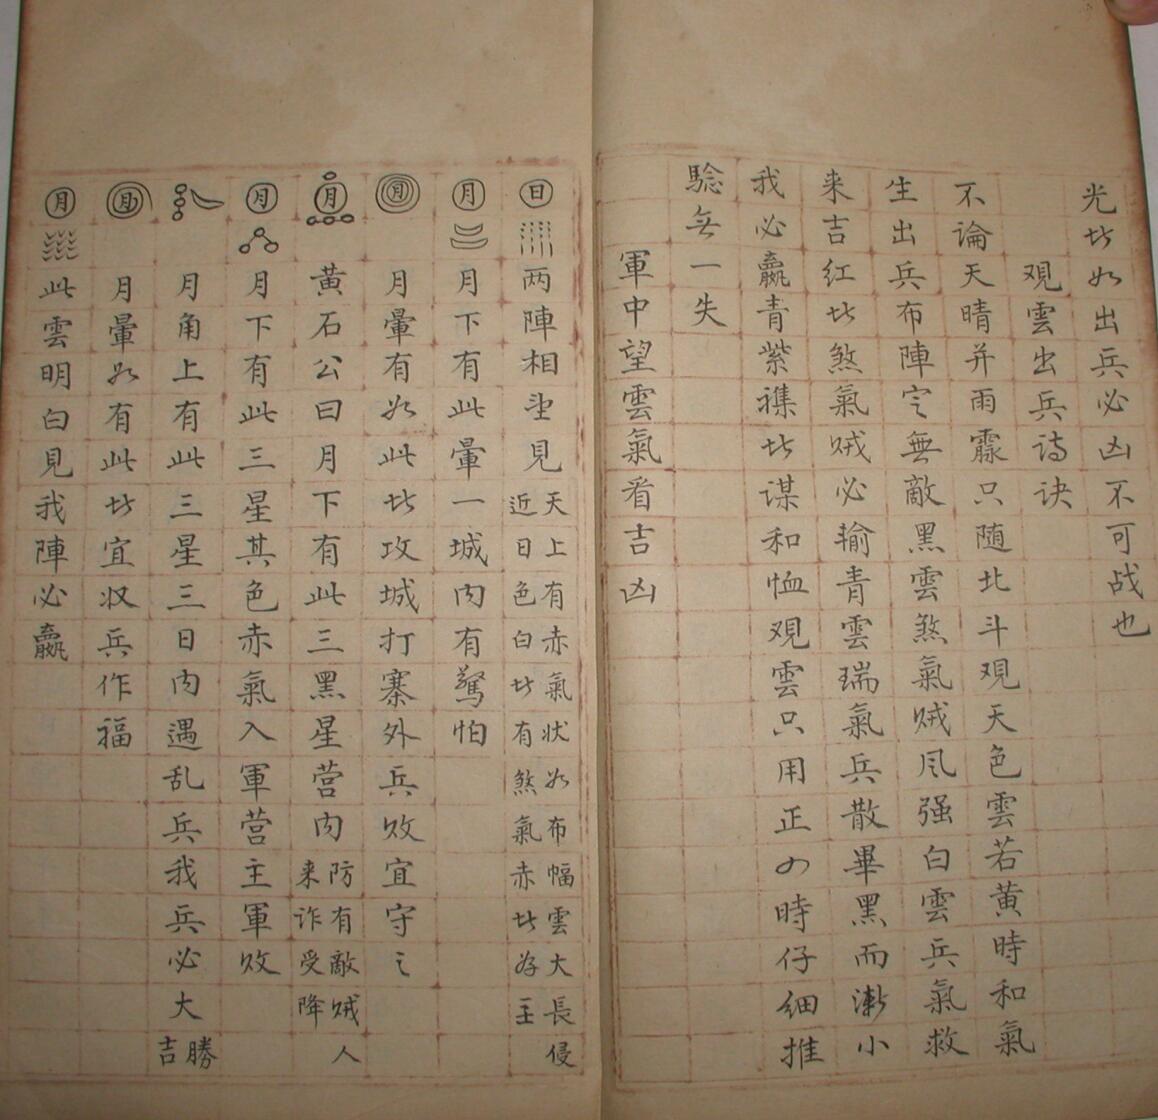 光此如出兵必凶不可战也
观雲出兵诗诀
不論天晴并雨霖只随北斗观天色雲若黄時和氣
生出兵布陣定無敵黑雲煞氣贼风强白雲兵氣救
来吉红此煞氣贼必输青雲瑞氣兵散畢黑而漸小
我必贏青紫襍此谋和恤观雲只用正の時仔细推
騐無一失
軍中望雲氣看吉凶
日两陣相望見天上有赤氣状如布幅雲大長侵
近日色白此有煞氣赤此為主
月月下有此暈一城内有驚怕
月月暈有如此此攻城打寨外兵敗宜守之
月黄石公曰月下有此三黑星营内防有敵贼人
来诈受降
月月下有此三星其色赤氣入軍营主軍敗
月角上有此三星三日内遇乱兵我兵必大勝
吉
月月暈如有此此宜収兵作福
月此雲明白見我陣必贏